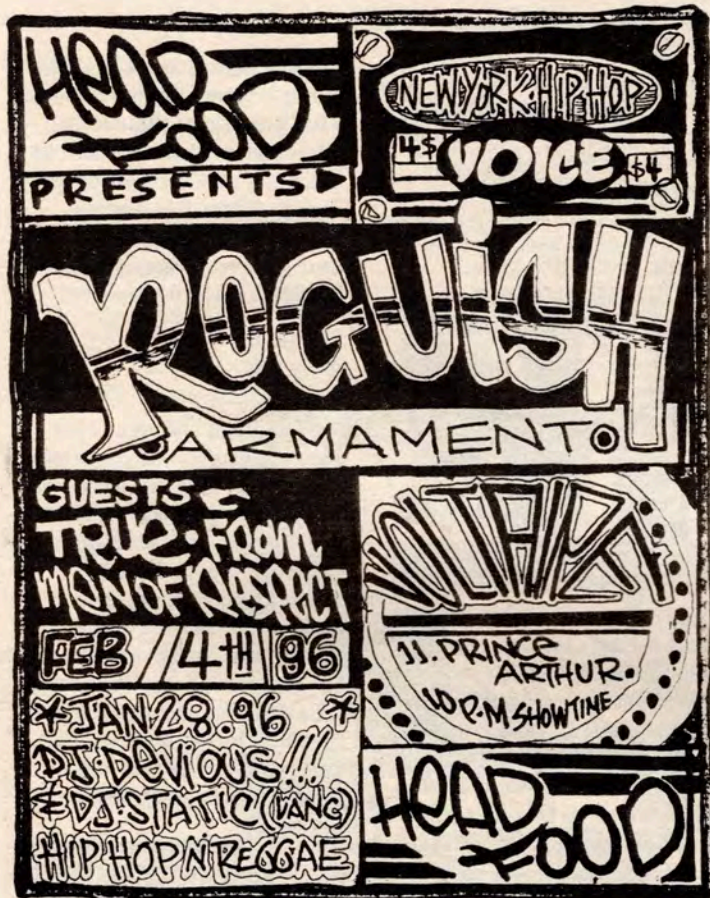 HEAD
FOOD
PRESENTS
NEW YORK HIP HOP
4$ VOICE $4
ROGUISH
ARMAMENT
GUESTS
TRUE • FROM
MEN OF RESPECT
FEB // 4TH 96
* JAN 28. 96 *
DJ. DEVIOUS!!!
& DJ. STATIC (VANC)
HIP HOP N REGGAE
11. PRINCE
ARTHUR.
10 P.M SHOWTIME
HEAD
FOOD